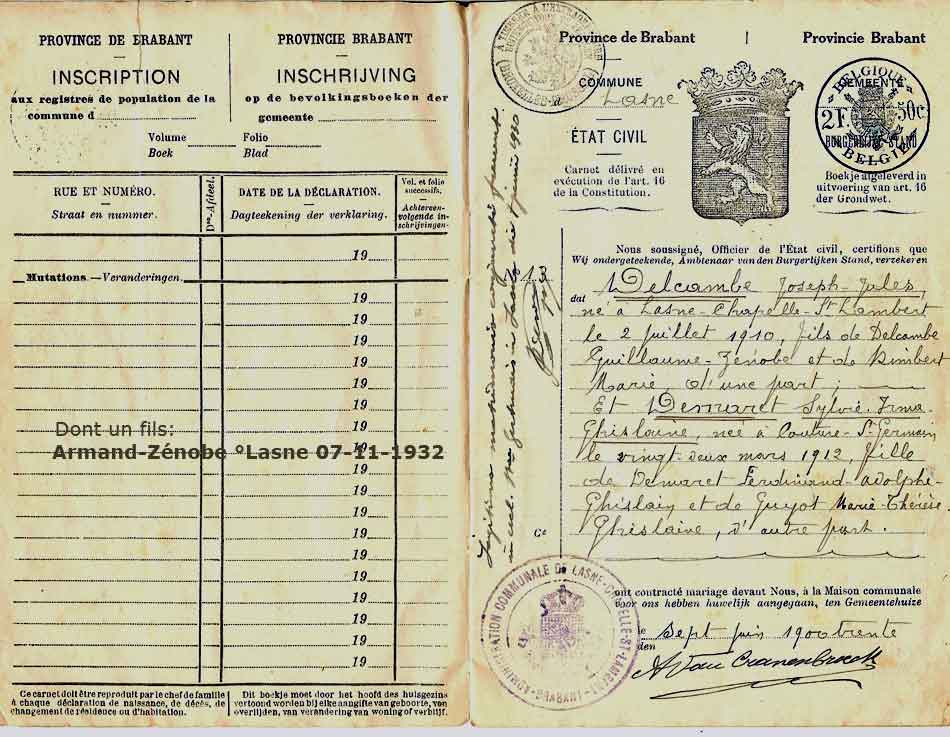 PROVINCE DE BRABANT
PROVINCIE BRABANT
INSCRIPTION
INSCHRIJVING
aux registres de population de la
commune d
op de bevolkingsboeken der
gemeente
Volume
Boek
Folio
Blad
RUE ET NUMÉRO.
Straat en nummer.
DATE DE LA DÉCLARATION.
Dagteekening der verklaring.
Vol. et folio
successifs.
Achtereen-
volgende in-
schrijvingen
19
Mutations.—Veranderingen.
19
19
19
19
19
19
19
19
19
19
19
19
19
19
19
19
19
19
Dont un fils:
Armand-Zénobe °Lasne 07-11-1932
Ce carnet doit être reproduit par le chef de famille
à chaque déclaration de naissance, de décès, de
changement de résidence ou d'habitation.
Dit boekje moet door het hoofd des huisgezins
vertoond worden bij elke aangifte van geboorte, van
overlijden, van verandering van woning of verblijf.
Province de Brabant
Provincie Brabant
COMMUNE
Lasne
GEMEENTE
BELGIQUE
2F. 50c.
BELGIË
ÉTAT CIVIL
BURGERLIJKE STAND
Carnet délivré en
exécution de l'art. 16
de la Constitution.
Boekje afgeleverd in
uitvoering van art. 16
der Grondwet.
Nous soussigné, Officier de l'État civil, certifions que
Wij ondergeteekende, Ambtenaar van den Burgerlijken Stand, verzekeren
dat
Delcambe Joseph-Jules,
né à Lasne-Chapelle-St Lambert
le 2 juillet 1910, fils de Delcambe
Guillaume-Zénobe et de Rimbert
Marie, d'une part ;
Et Demaret Sylvie-Irma-
Ghislaine, née à Couture-St Germain
le vingt-deux mars 1912, fille
de Demaret Ferdinand-Adolphe-
Ghislain et de Guyot Marie-Thérèse-
Ghislaine, d'autre part.
ont contracté mariage devant Nous, à la Maison communale
voor ons hebben huwelijk aangegaan, ten Gemeentehuize
le
den
sept juin 1900 trente
ADMINISTRATION COMMUNALE DE LASNE-CHAPELLE-ST-LAMBERT
BRABANT